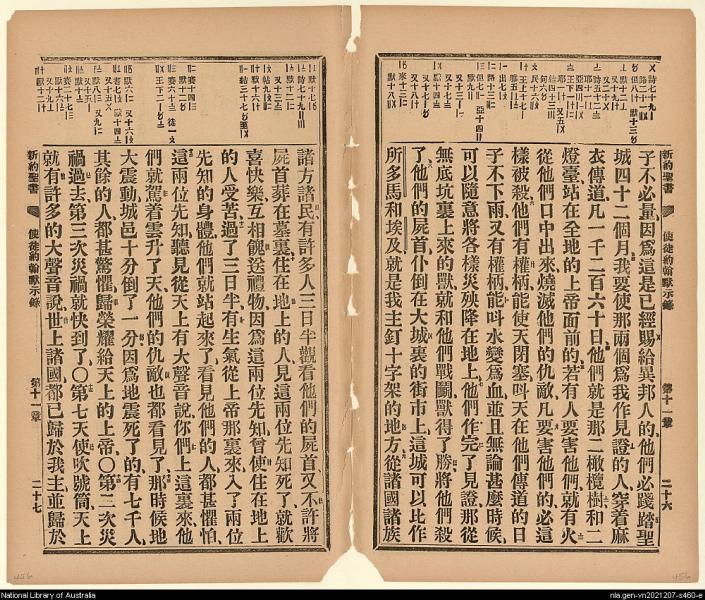 新約聖書
使徒約翰默示錄
第十一章
二十六
子不必量因爲這是已經賜給異邦人的他們必踐踏聖
城四十二個月我要使那兩個爲我作見證的人穿着麻
衣傳道凡一千二百六十日他們就是那二橄欖樹和二
燈臺站在全地的上帝面前的若有人要害他們就有火
從他們口中出來燒滅他們的仇敵凡要害他們的必這
樣被殺他們有權柄能使天閉塞叫天在他們傳道的日
子不下雨又有權柄能叫水變爲血並且無論甚麽時候
可以隨意將各樣災殃降在地上他們作完了見證那從
無底坑裏上來的獸就和他們戰鬬獸得了勝將他們殺
了他們的屍首仆倒在大城裏的街市上這城可以比作
所多馬和埃及就是我主釘十字架的地方從諸國諸族
諸方諸民有許多人三日半觀看他們的屍首又不許將
屍首葬在墓裏住在地上的人見這兩位先知死了就歡
喜快樂互相餽送禮物因爲這兩位先知曾使住在地上
的人受苦過了三日半有生氣從上帝那裏來入了兩位
先知的身體他們就站起來了看見他們的人都甚懼怕
這兩位先知聽見從天上有大聲音說你們上這裏來他
們就駕着雲升了天他們的仇敵也都看見了那時候地
大震動城邑十分倒了一分因爲地震死了的有七千人
其餘的人都甚驚懼歸榮耀給天上的上帝○第二次災
禍過去第三次災禍就快到了○第七天使吹號筒天上
就有許多的大聲音說世上諸國都已歸於我主並歸於
新約聖書
使徒約翰默示錄
第十一章
二十七
456
456
National Library of Australia
nla.gen-vn2021207-s460-e